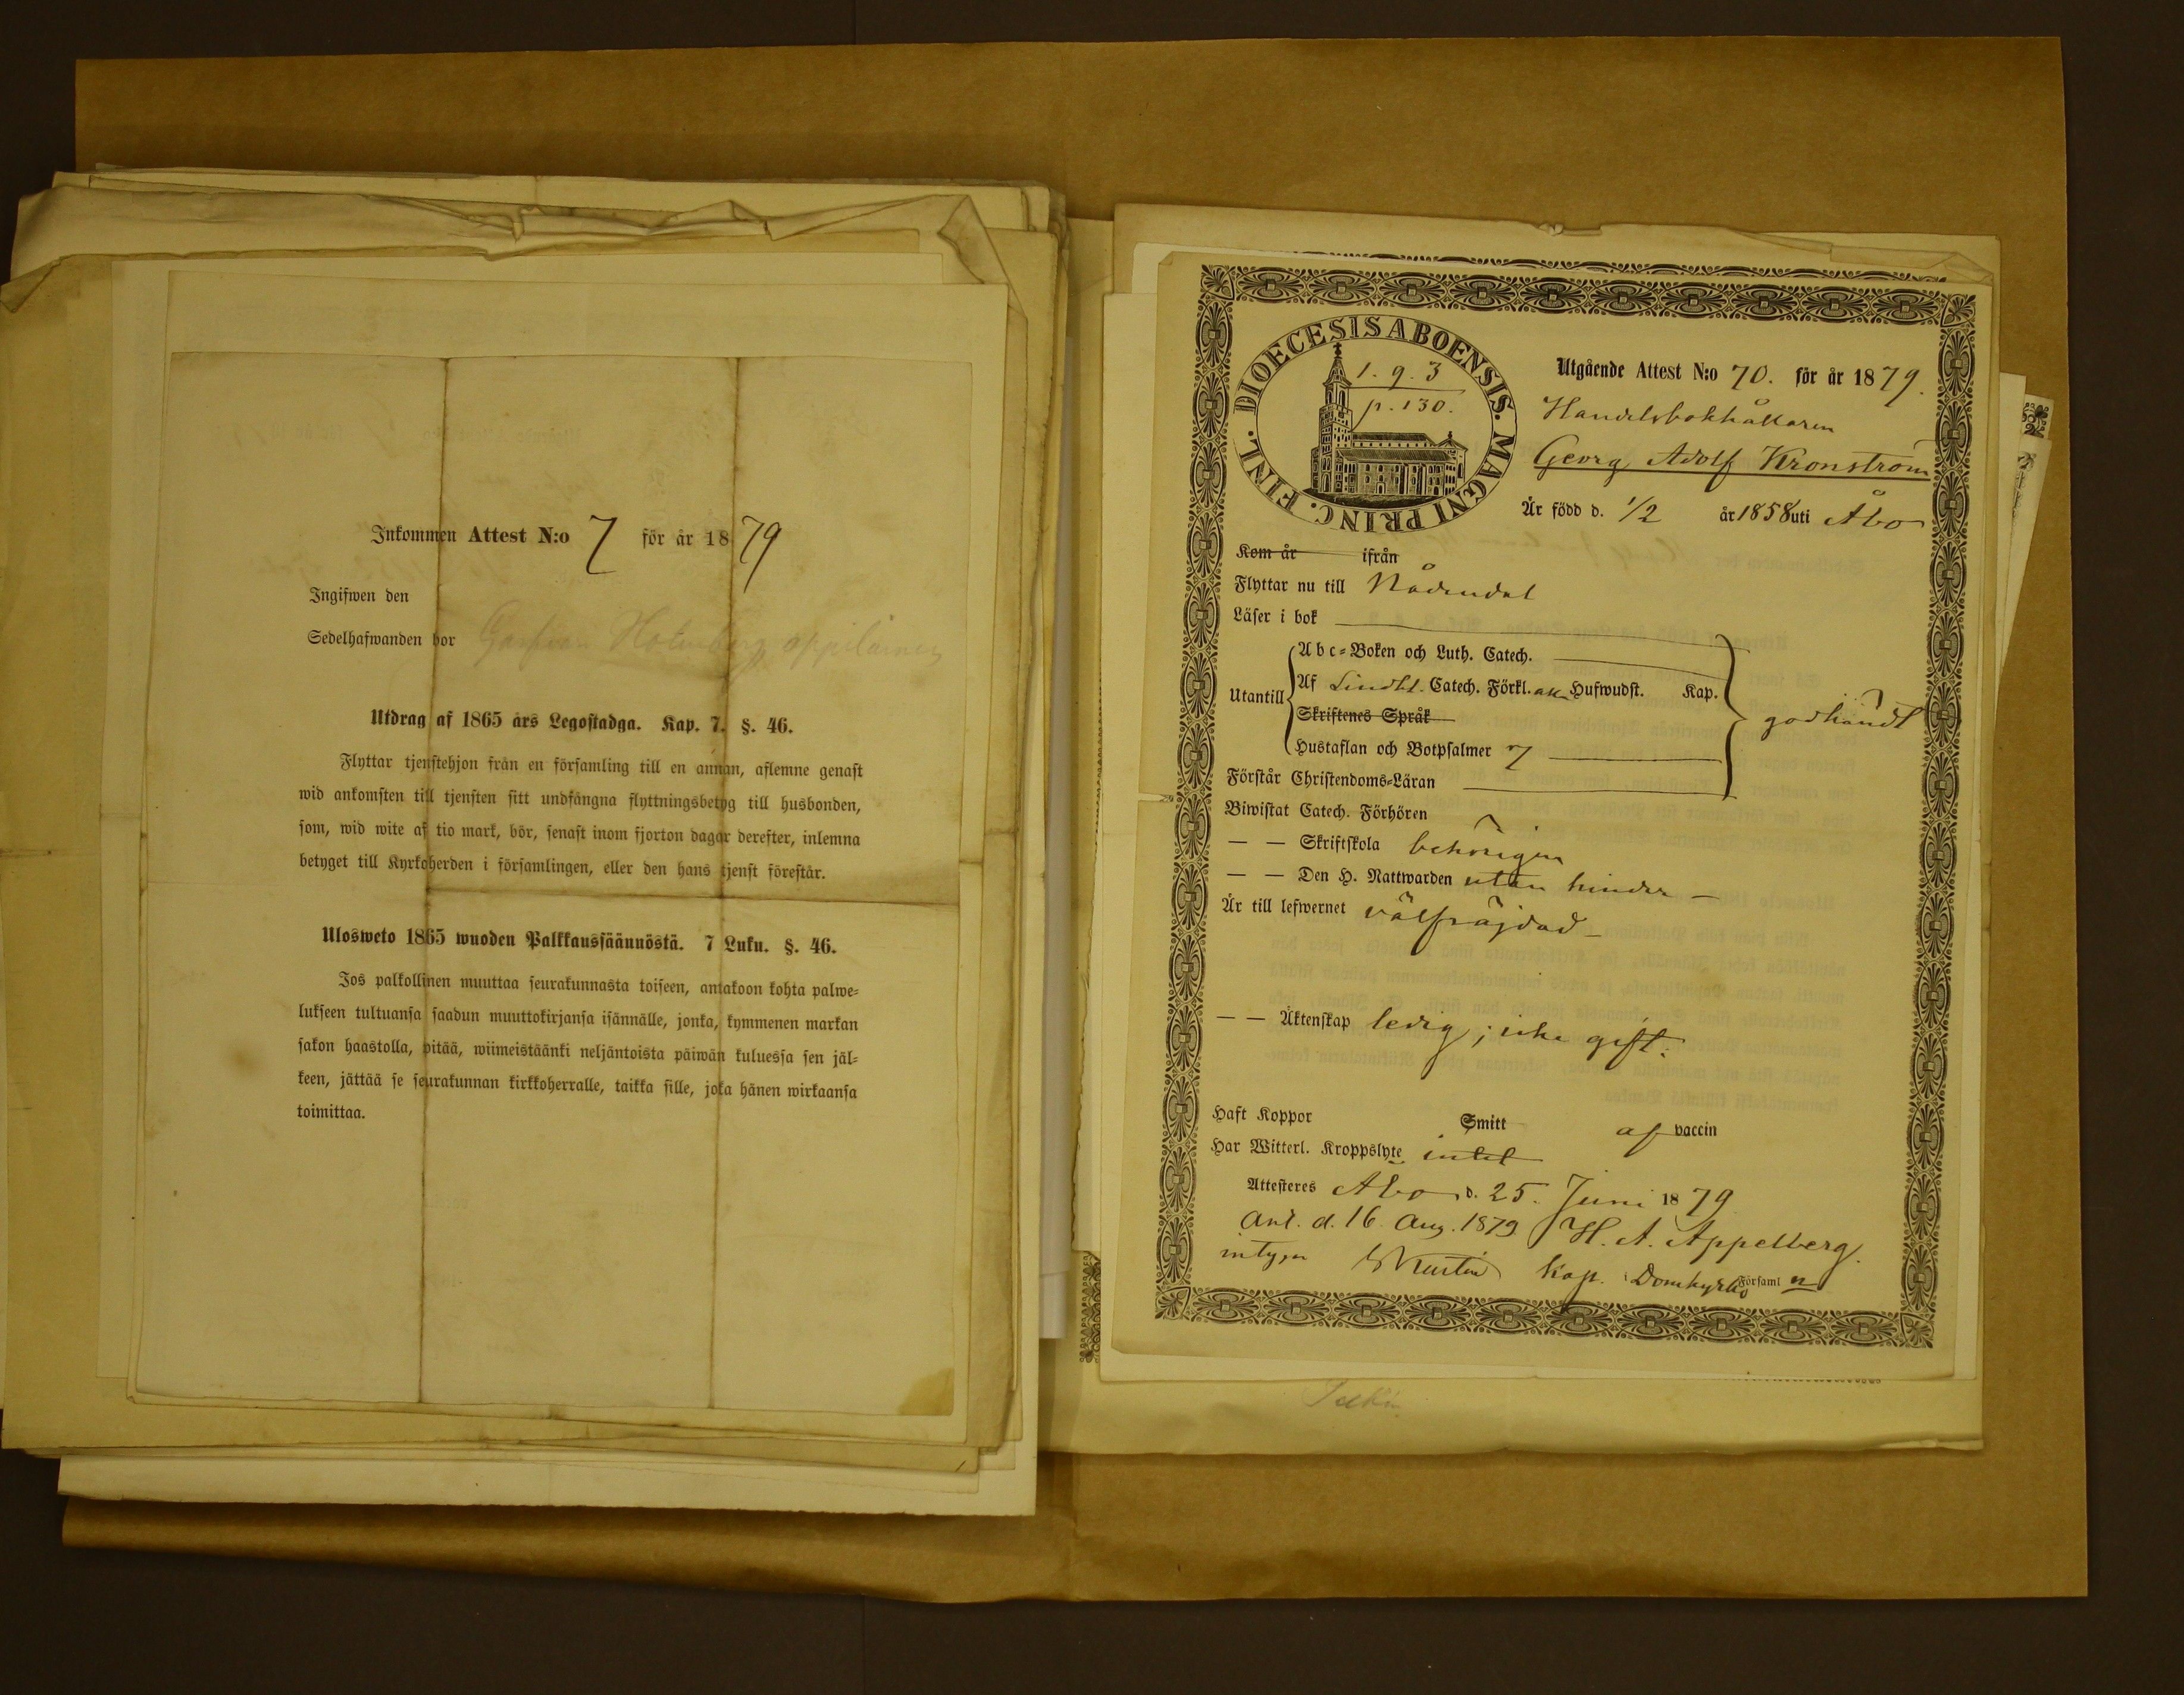 Inkommen Attest N:o 7 för år 1879
Ingifwen den
Sedelhafwanden bor
Utdrag af 1865 års Legostadga. Kap. 7. §. 46.
Flyttar tjenstehjon från en församling till en annan, aflemne genast
wid ankomsten till tjensten sitt undfångna flyttningsbetyg till husbonden,
som, wid wite af tio mark, bör, senast inom fjorton dagar derefter, inlemna
betyget till Kyrkoherden i församlingen, eller den hans tjenst förestår.
Uloswetο 1865 wuoden Palkkaussäännöstä. 7 Luku. §. 46.
Jos palkollinen muuttaa seurakunnasta toiseen, antakoon kohta palwe=
lukseen tultuansa saadun muuttokirjansa isännälle, jonka, kymmenen markan
sakon haastolla, pitää, wiimeistäänki neljäntoista päiwän kuluessa sen jäl=
keen, jättää se seurakunnan kirkkoherralle, taikka sille, joka hänen wirkaansa
toimittaa.
DIOECESIS ABOENSIS. MAGNI PRINC. FINL.
1. 9. 3
p. 130.
Utgående Attest N:o 70. för år 1879.
Handelsbokhållaren
Georg Adolf Kronström
Är född d. 1/2 år 1858 uti Åbo
Kom år ifrån
Flyttar nu till Nådendal
Läser i bok
Utantill
Abc=Boken och Luth. Catech.
Af Lindbl. Catech. Förkl. alla Hufwudst. Kap.
Skriftenes Språk
Hustaflan och Botpsalmer 7
godkändt
Förstår Christendoms=Läran
Biwistat Catech. Förhören
— — Skriftskola behörigen
— — Den H. Nattwarden utan hinder —
Är till lefwernet välfräjdad —
— — Äktenskap ledig; icke gift.
Haft Koppor Smitt af vaccin
Har Witterl. Kroppslyte intet
Attesteres Åbo d. 25. Juni 1879
Anl. d. 16 Aug. 1879 H. A. Appelberg.
intygar Kap. Domkyrko Församl n